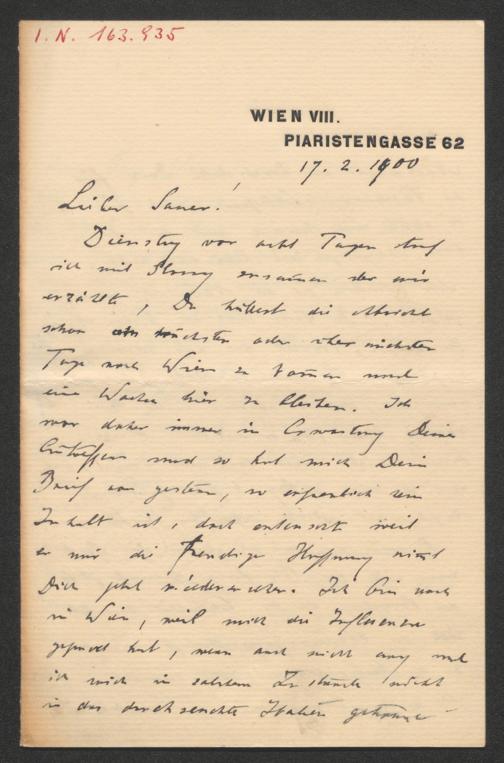 I. N. 163.935
WIEN VIII.
PIARISTENGASSE 62
17. 2. 1900
Lieber Sauer!
Dienstag vor acht Tagen traf
ich mit Glossy zusammen der mir
erzählte, Du hättest die Absicht
schon am nächsten oder übernächsten
Tage nach Wien zu kommen und
eine Woche hier zu bleiben. Ich
war daher immer in Erwartung Deines
Eintreffens und so hat mich Dein
Brief von gestern, so erfreulich sein
Inhalt ist, doch enttäuscht weil
er mir die freudige Hoffnung nimmt
Dich jetzt wiederzusehen. Ich bin noch
in Wien, weil mich die Influenza
gepackt hat, wenn auch nicht arg und
ich mich in solchem Zustande nicht
in das durchseuchte Italien getraue